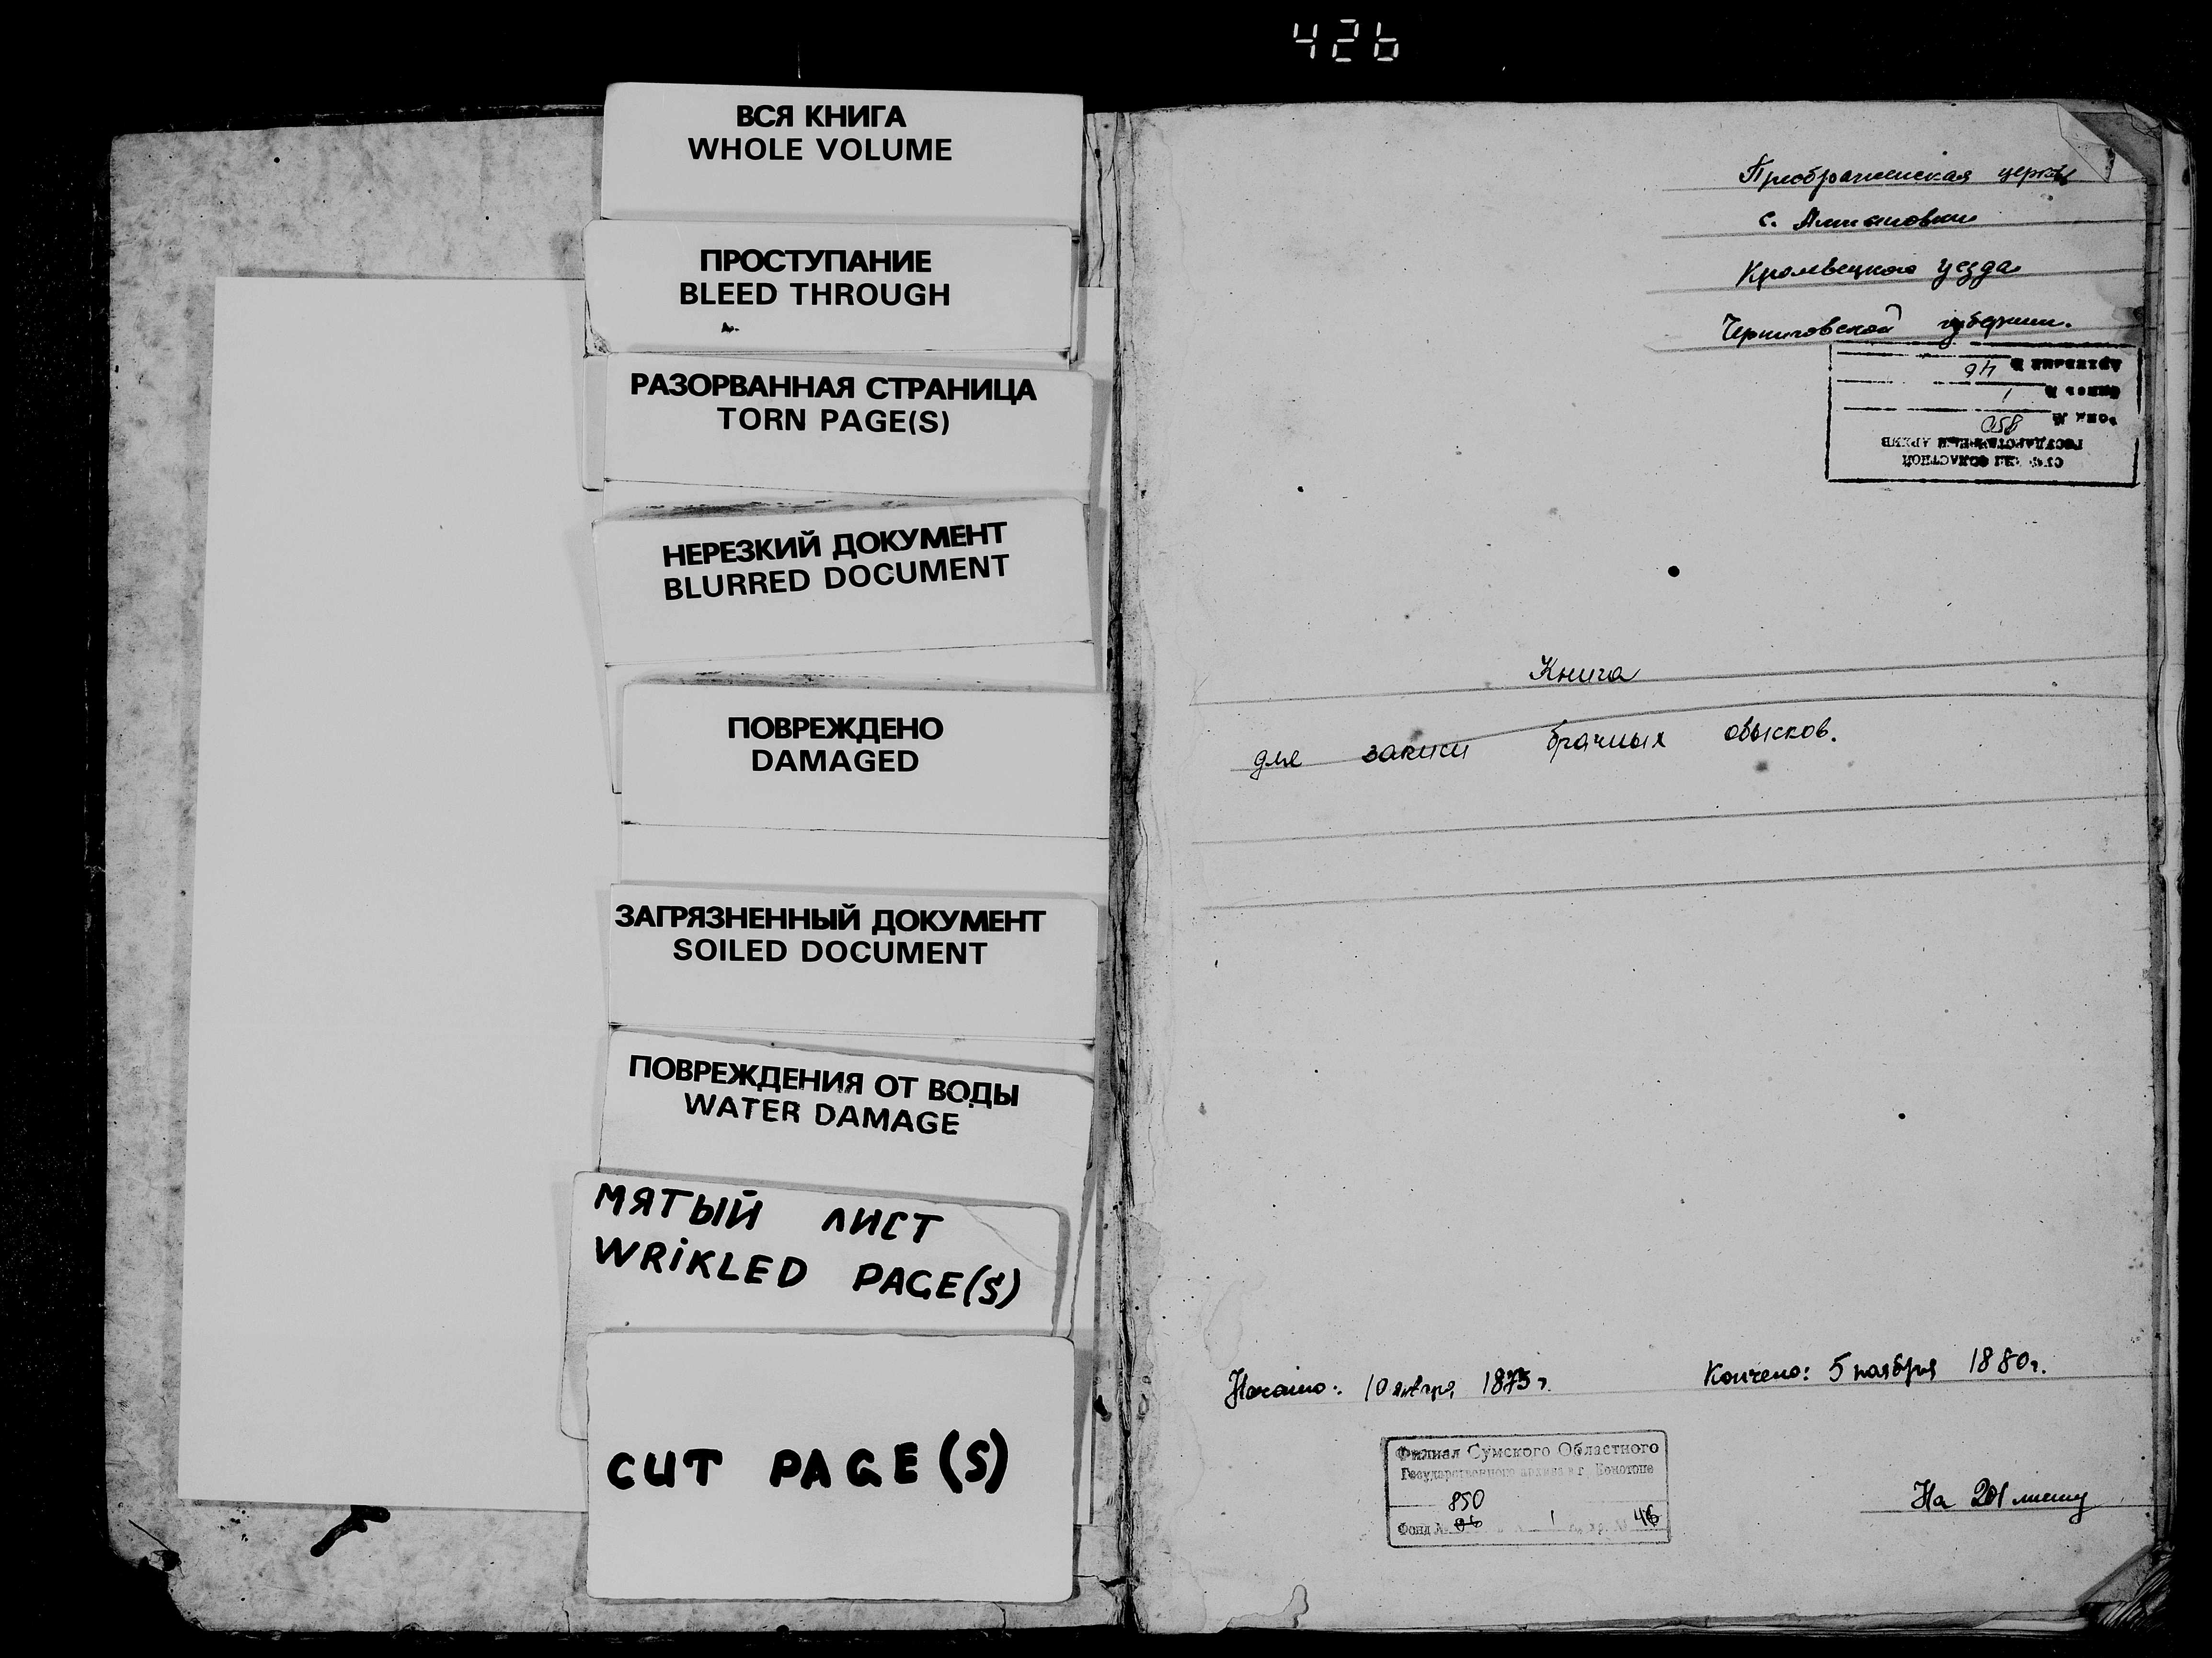 426
ВСЯ КНИГА
WHOLE VOLUME
ПРОСТУПАНИЕ
BLEED THROUGH
РАЗОРВАННАЯ СТРАНИЦА
TORN PAGE(S)
НЕРЕЗКИЙ ДОКУМЕНТ
BLURRED DOCUMENT
ПОВРЕЖДЕНО
DAMAGED
ЗАГРЯЗНЕННЫЙ ДОКУМЕНТ
SOILED DOCUMENT
ПОВРЕЖДЕНИЯ ОТ ВОДЫ
WATER DAMAGE
МЯТЫЙ ЛИСТ
WRiKLED PAGE(S)
CUT PAGE(S)
Преображенская церковь
с.
Кролевецкого уезда
Черниговской губернии.
ОБЛАСТНОЙ
ГОСУДАРСТВЕННЫЙ АРХИВ
Фонд № 850
Опись № 1
46
Книга
для записи брачных обысков.
Начато: 10 января 1875 г.
Кончено: 5 ноября 1880 г.
Филиал Сумского Областного
Государственного архива в г. Конотопе
850
Фонд № 1 46
На 201 листу